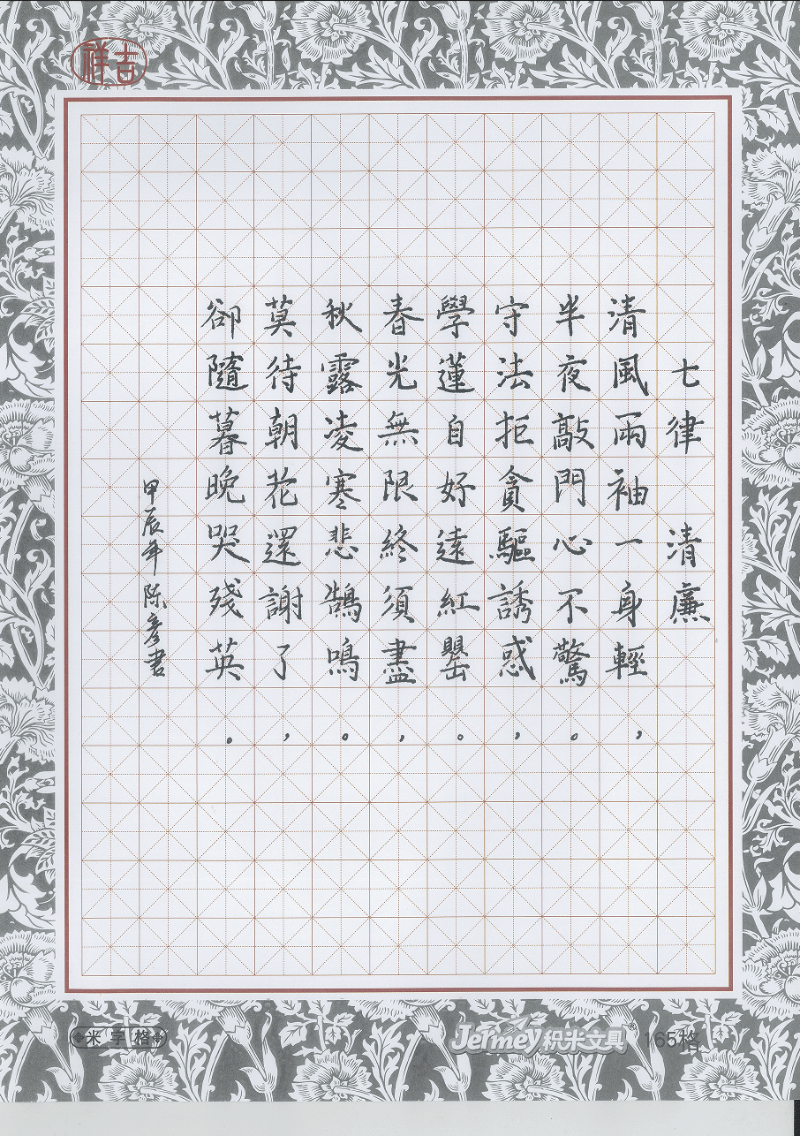 吉祥
七律 清廉
清風兩袖一身輕，
半夜敲門心不驚。
守法拒貪驅誘惑，
學蓮自好遠紅罌。
春光無限終須盡，
秋露凌寒悲鵠鳴。
莫待朝花還謝了，
卻隨暮晚哭殘英。
甲辰年 陈彦書
米字格
Jermey积米文具®
165格